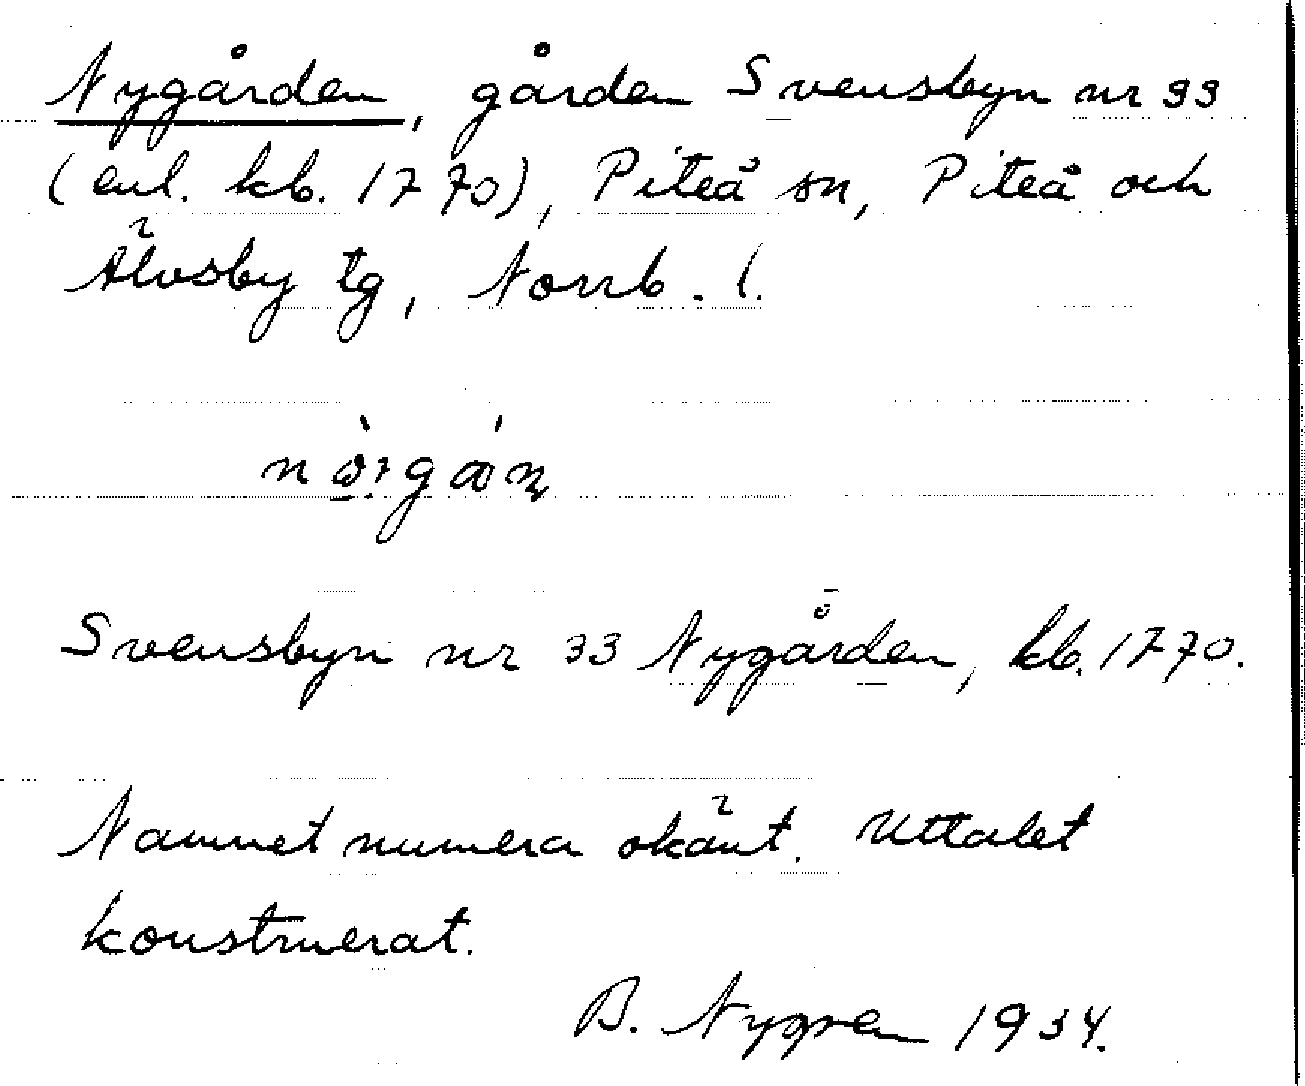 Nygården, gården Svensbyn nr 33
(enl. kb. 1770), Piteå sn, Piteå och
Älvsby tg, Norrb. l.
Svensbyn nr 33 Nygården, kb. 1770.
Namnet numera okänt. Uttalet
konstruerat.
B. Nygren 1934.